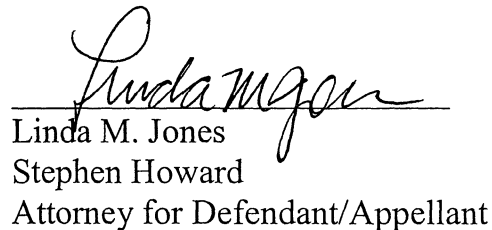 Linda M Jones
Linda M. Jones
Stephen Howard
Attorney for Defendant/Appellant